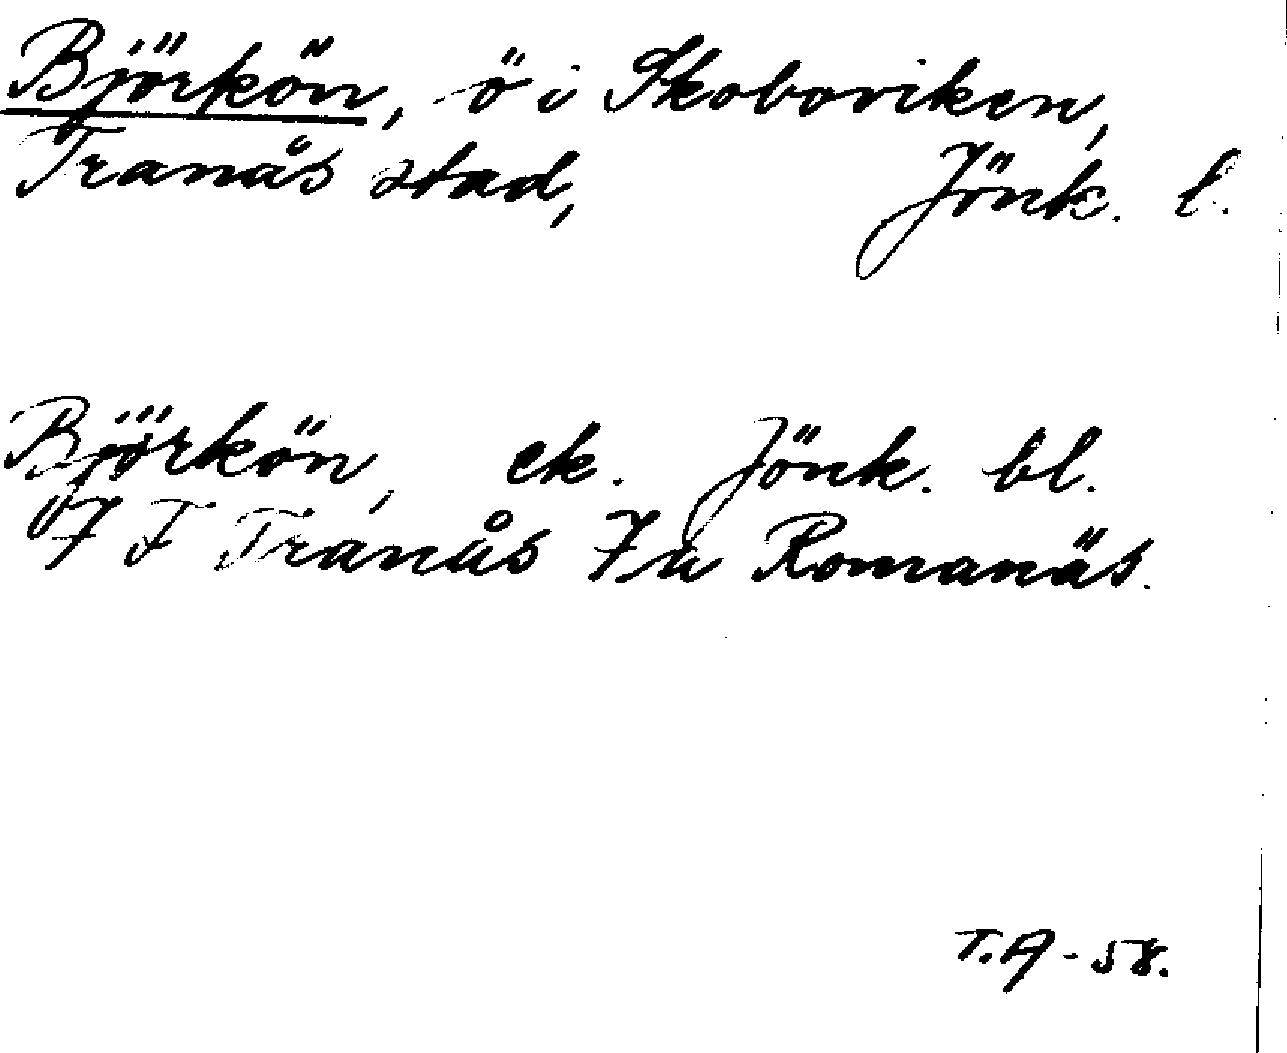 Björkön, ö i Skoboviken,
Tranås stad, Jönk. l.
Björkön, ek. Jönk. bl.
7 F Tranås 7a Romanäs.
T.A-58.